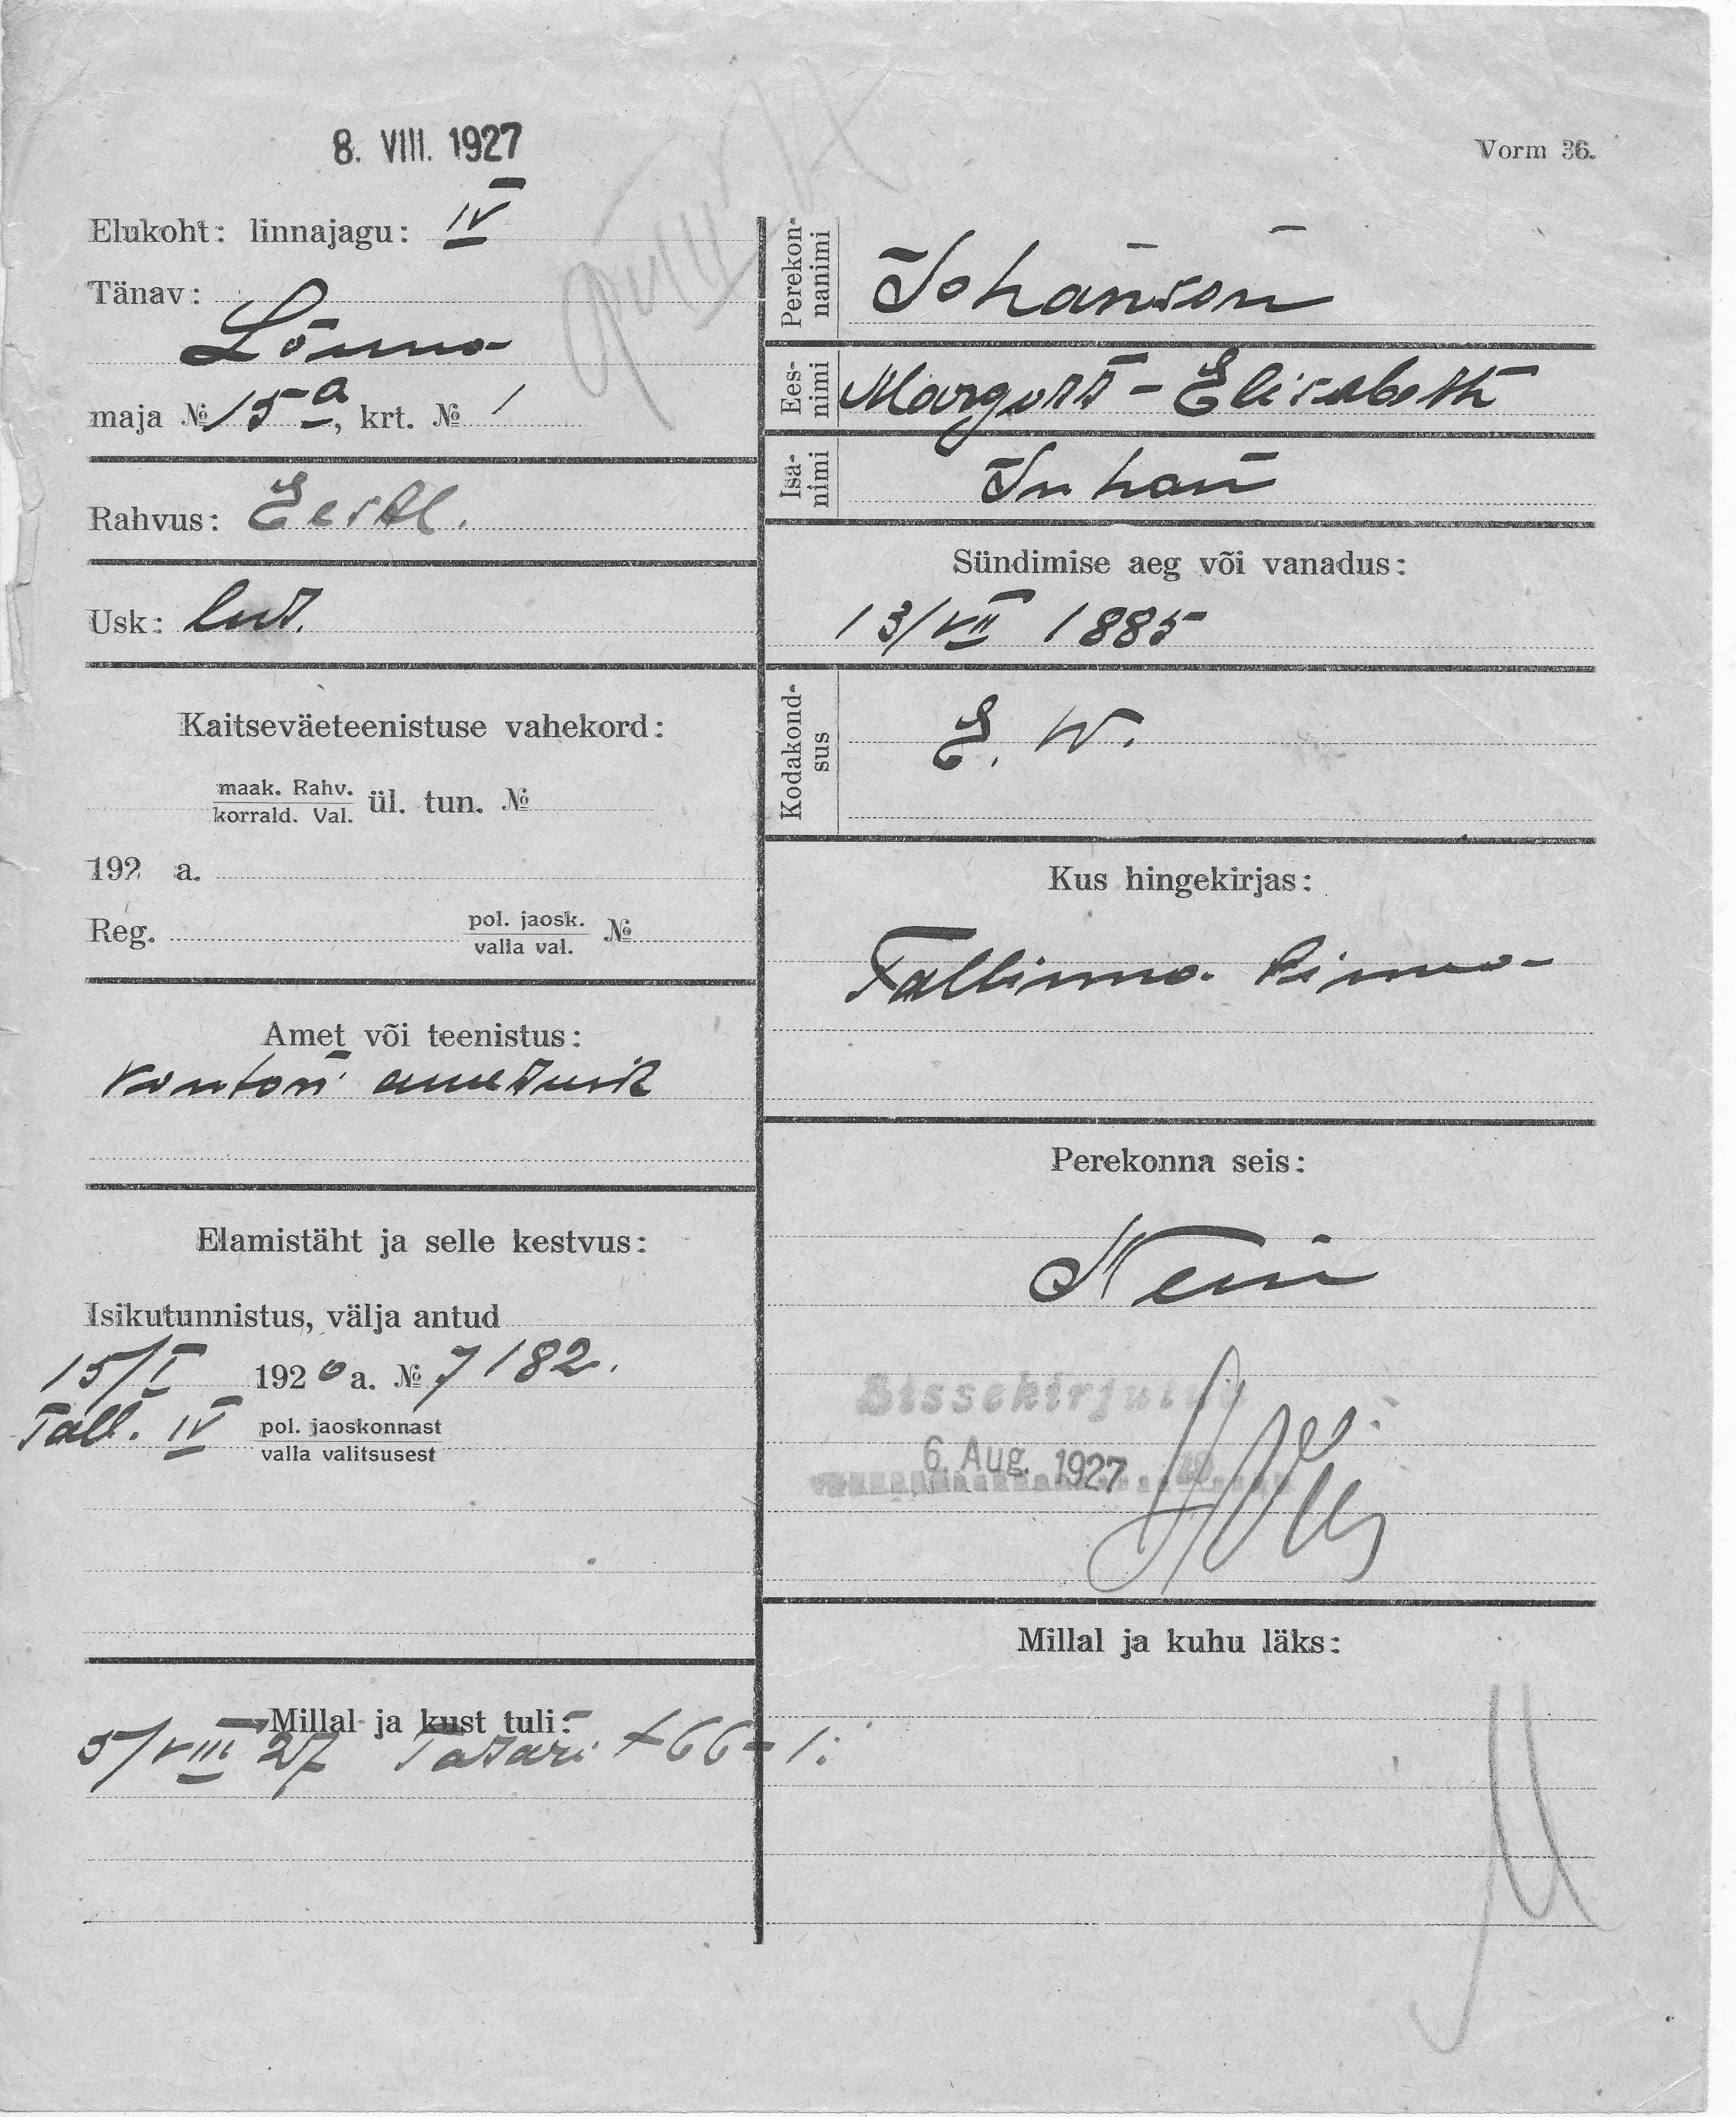 8. VIII. 1927
Vorm 36.
Elukoht: linnajagu: IV
Tänav:
maja № 15a, krt. № 1
Rahvus: Eestl.
Usk: lut.
Kaitseväeteenistuse vahekord:
maak. Rahv.
korrald. Val. ül. tun. №
192 a.
Reg. pol. jaosk. №
valla val.
Amet või teenistus:
kontori ametnik
Elamistäht ja selle kestvus:
Isikutunnistus, välja antud
15/I 1920 a. № 7182.
Tall. IV pol. jaoskonnast
valla valitsusest
Millal ja kust tuli:
5/VIII 27 Tatari 66-1.
Perekonnanimi
Johanson
Eesnimi
Margot-Elisabeth
Isanimi
Juhan
Sündimise aeg või vanadus:
13/VII 1885
Kodakondsus
E. W.
Kus hingekirjas:
Tallinna linna
Perekonna seis:
Neiu
Sissekirjutud
6. Aug. 1927
Millal ja kuhu läks: